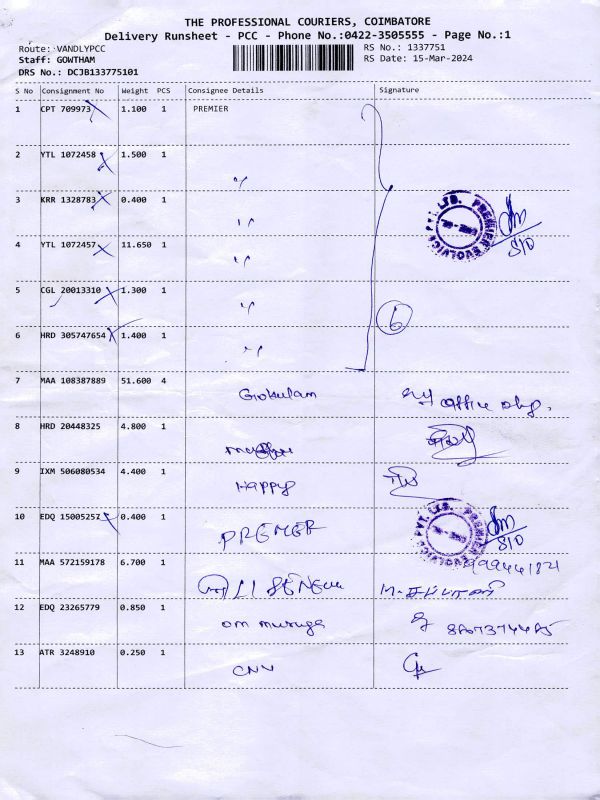 THE PROFESSIONAL COURIERS, COIMBATORE
Delivery Runsheet - PCC - Phone No.:0422-3505555 - Page No.:1
Route: VANDLYPCC RS No.: 1337751
Staff: GOWTHAM RS Date: 15-Mar-2024
DRS No.: DCJB133775101
S No Consignment No Weight PCS Consignee Details Signature
1 CPT 709973 1.100 1 PREMIER
2 YTL 1072458 1.500 1 〃
3 KRR 1328783 0.400 1 〃
PVT. LTD. PREMIER EVOLVICS
4 YTL 1072457 11.650 1 〃 S/O
5 CGL 20013310 1.300 1 〃
6
6 HRD 305747654 1.400 1 〃
7 MAA 108387889 51.600 4 Gokulam office
8 HRD 20448325 4.800 1
9 IXM 506080534 4.400 1 Happy
10 EDQ 15005257 0.400 1 PREMIER
PVT. LTD. PREMIER EVOLVICS S/O
11 MAA 572159178 6.700 1
12 EDQ 23265779 0.850 1 om muruga
13 ATR 3248910 0.250 1 CNV